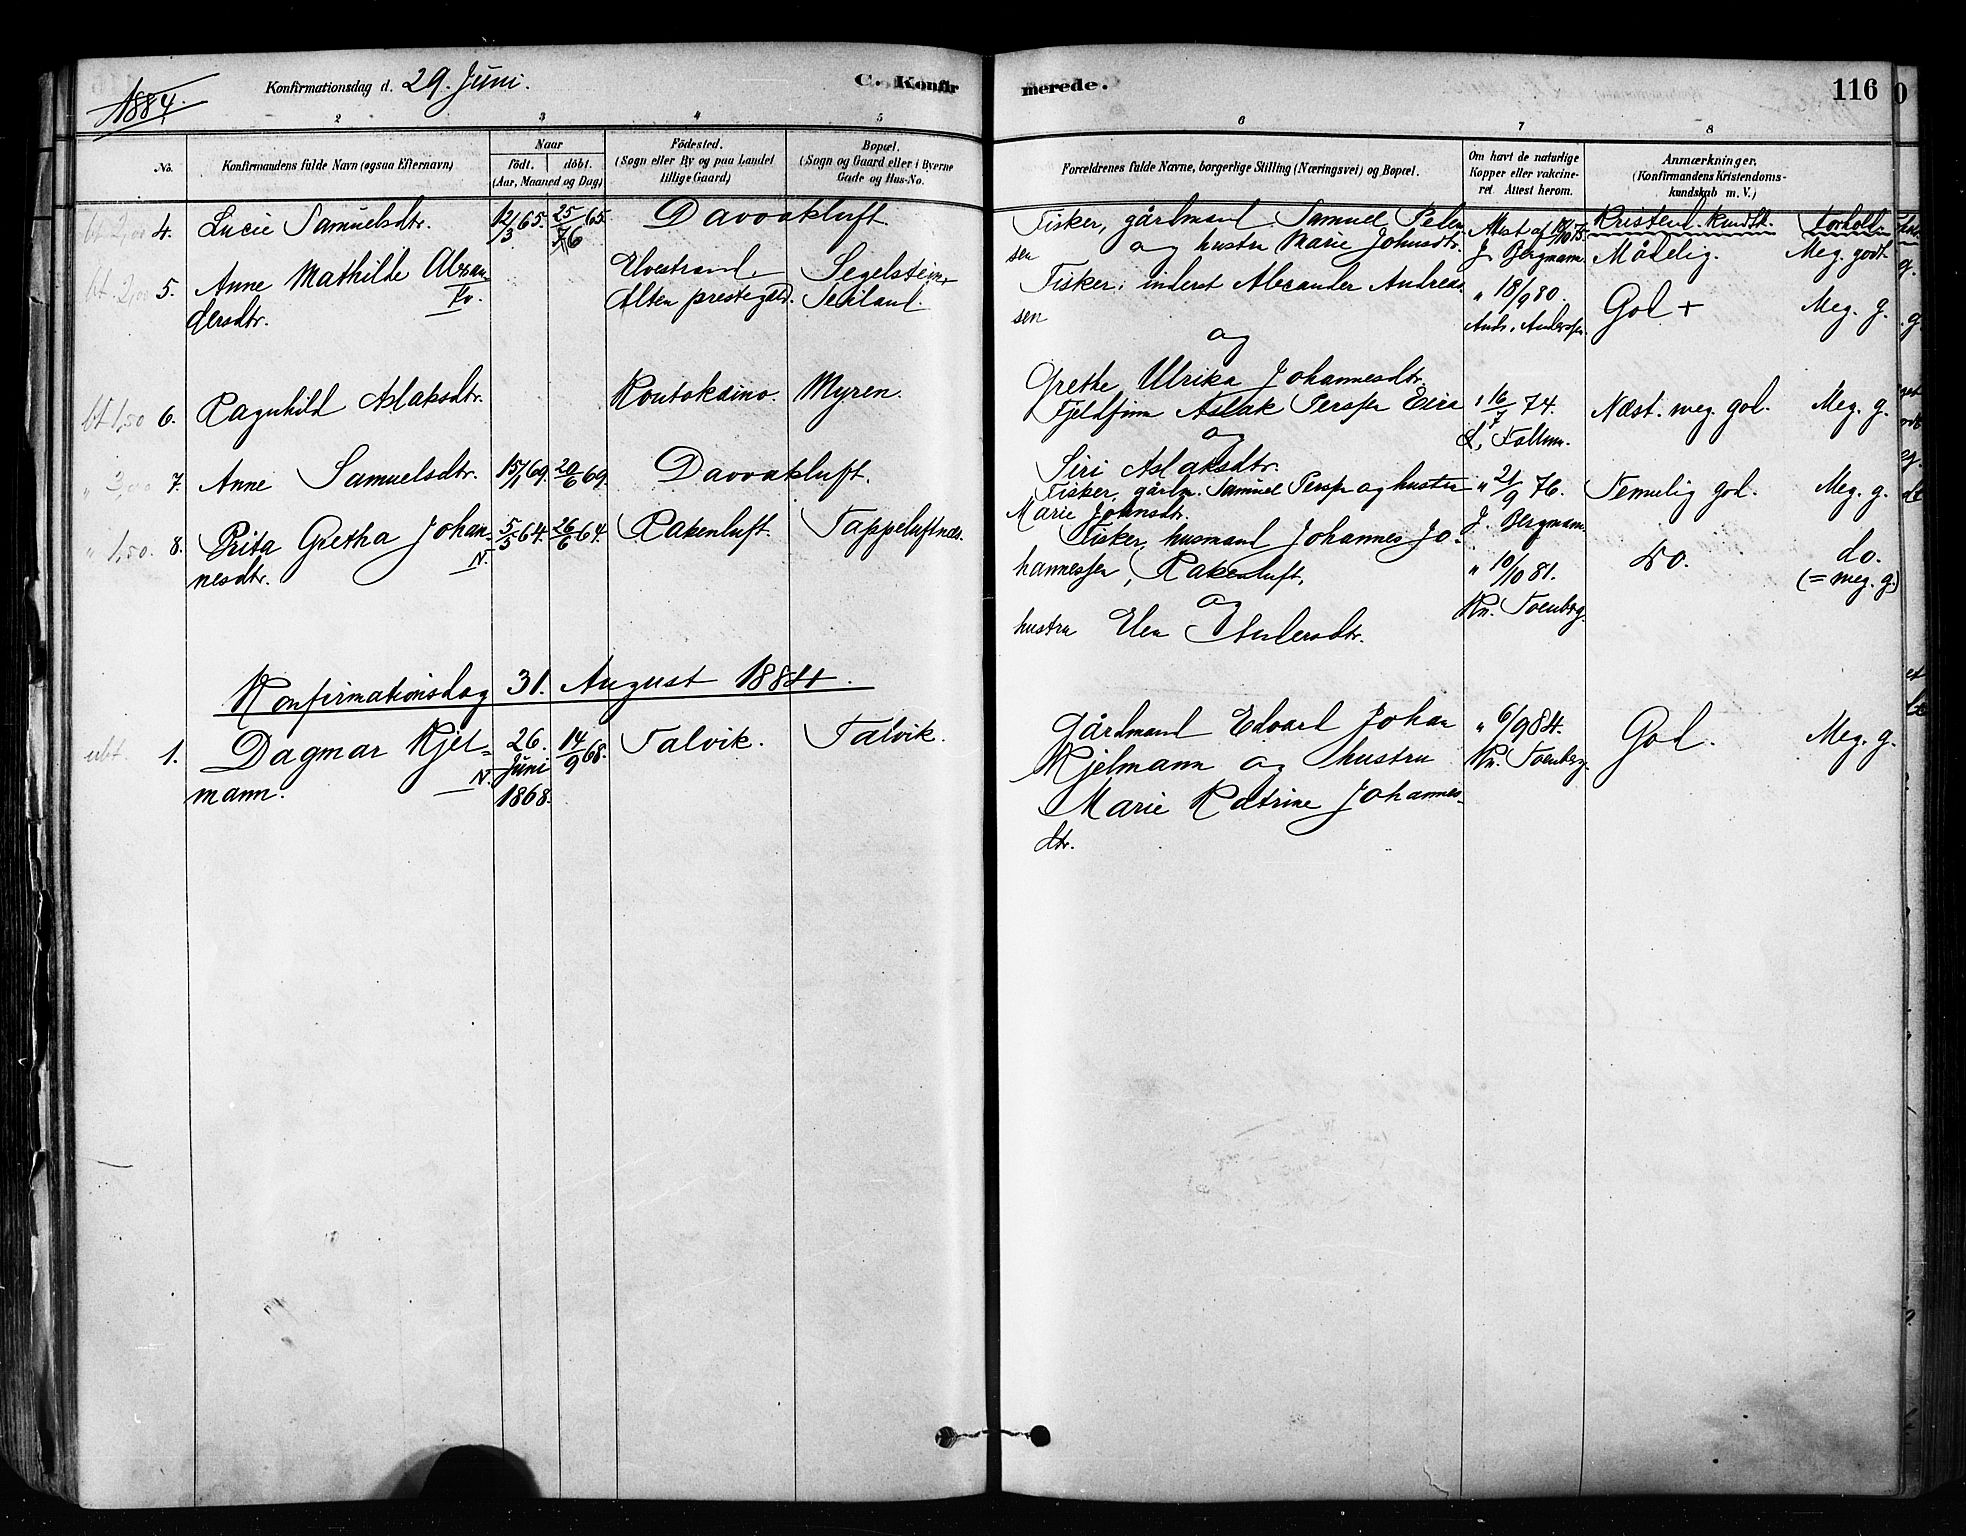 1884. Konfirmationsdag d. 29. Juni. C. Konfirmerede. 116
2 3 4 5 6 7 8
No. Konfirmandens fulde Navn (ogsaa Efternavn)
Naar
födt. döbt.
(Aar, Maaned og Dag)
Födested.
(Sogn eller By og paa Landet
tillige Gaard)
Bopæl.
(Sogn og Gaard eller i Byerne
Gade og Hus-No.
Forældrenes fulde Navne, borgerlige Stilling (Næringsvei) og Bopæl.
Om havt de naturlige
Kopper eller vakcine-
ret. Attest herom.
Anmærkninger.
(Konfirmandens Kristendoms-
kundskab m. V.)
bt 2,00 4. Lucie Samuelsdtr. 12/3 65. 25/6 65. Davvakluft
Fisker, gårdmand Samuel Peder
sen og hustru Marie Johnsdtr.
Attest af 19/10 75.
J. Bergmann.
Kristend. kundsk. Forhold.
Mådelig. Meg. godt
bt 2,00 5. Anne Mathilde Alexan
dersdtr.
Elvestrand
Alten prestegjeld.
Segelstein,
Seiland.
Fisker, inderst Alexander Andreas
sen
og
Grethe Ulrika Johannesdtr.
" 18/9 80.
Ands. Andersen.
God + Meg. g.
bt 1,50 6. Ragnhild Aslaksdtr. Koutokeino. Myren.
Fjeldfinn Aslak Persen Eira
og
Siri Aslaksdtr.
" 16/7 74.
Næst. meg. god. Meg. g.
" 3,00 7. Anne Samuelsdtr. 15/1 69. 20/6 69. Davvakluft.
Fisker, gårdm. Samuel Persen og hustru
Marie Johnsdtr.
" 21/9 76.
J. Bergmann.
Temmelig god. Meg. g.
" 1,50. 8. Brita Gretha Johan-
nesdtr. N.
5/5 64. 26/6 64. Rakenluft. Tappeluftnæs.
Fisker, husmand Johannes Jo-
hannessen, Rakenluft,
og
hustru Elen Andersdtr.
" 10/10 81.
Kn. Foenberg.
do. do.
(= meg. g.)
Konfirmationsdag 31. August 1884.
ubt. 1. Dagmar Kjel-
mann. N.
26.
Juni
1868.
14/9 68. Talvik. Talvik.
Gårdmand Edvard Johan
Kjelmann og hustru
Marie Katrine Johannes-
dtr.
" 6/9 84.
Kn. Foenberg.
God. Meg. g.